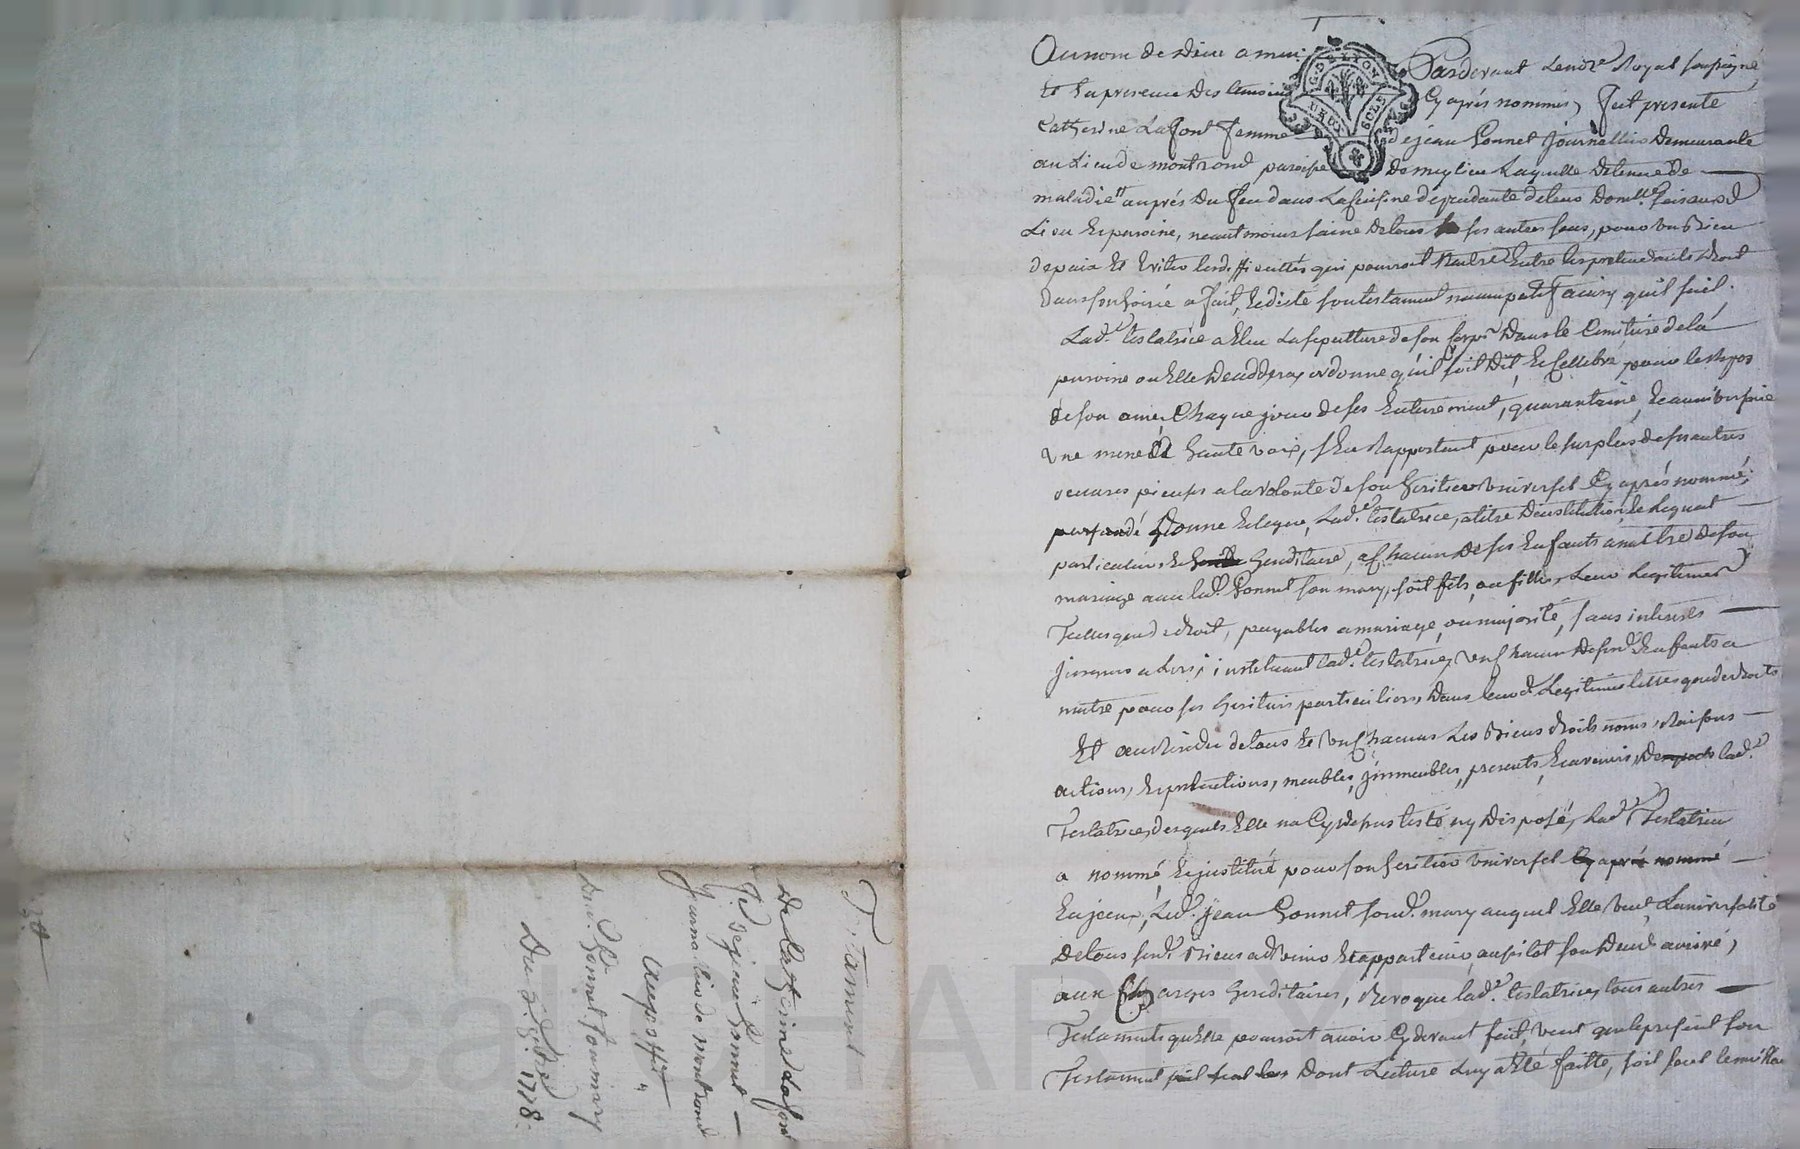 Au nom de Dieu amen. Pardevant le no.re Royal soussigné
et en presence des temoins Cy après nommés, fut presente
Catherine Lafont femme de jean Gonnet journallier demeurante
au Lieu de montrond paroisse de Laquelle detenue de
maladie auprés du feu dans La cuisine dependante de leur
Lieu et paroisse, neantmoins saine de tous ses autres sens, pour un Bien
de paix et Eviter les difficultés qui pourroit Naitre Entre les pretendants droit
dans son hoirie a fait, et dicté son testament nuncupatif ainsy quil suit.
Lad.e testatrice a Elu La sepulture de son corps dans le Cimitiere de la
paroisse ou Elle decedera, ordonne qu'il soit dit, et Cellebré pour le repos
de son ame, Chaque jour de ses Enterrement, quarantaine, et anniversaire
Une messe a haute voix, s'En Rapportant pour le surplus de ses autres
oeuvres pieuses a la volonté de son heritier universel Cy aprés nommé;
Donne et legue, Lad.e testatrice, a titre D'institution, et Legat
particulier, et hereditaire, a chacun de ses Enfants a naitre de son
mariage avec led. Gonnet son mary, soit fils, ou filles, Leur Legitime
Telle que de droit, payables a mariage, ou majorité, sans interets
jusques alors, instituant lad.e testatrice, un chacun de sesd. Enfants a
naitre pour ses heritiers particuliers, dans leurd. Legitime telle que de droits
Et au Residu de tous et un chacuns Les Biens droits noms, Raisons
actions, et pretentions, meubles, jmmeubles, presents, et avenirs, lad.e
Testatrice, desquels Elle na Cy dessus testé ny disposé, Lad.e Testatrice
a nommé, et jnstitué pour son heritier universel Cy aprés nommé
Led. jean Gonnet sond. mary auquel Elle veut L'universalité
de tous sesd. Biens advenir et appartenir, aussitot son Deceds arrivé,
aux Charges hereditaires, Revoque lad.e testatrice, tous autres
Testaments qu'Elle pourroit avoir Cy devant fait, veut que le present son
Testament dont Lecture Luy a Eté faitte, soit seul le meilleur
Testament
De Catherine Lafont
f.e de jean Gonnet
journallier de montrond
au proffit
Dud. Gonnet son mary
Du 1778.
JCHAREYRON